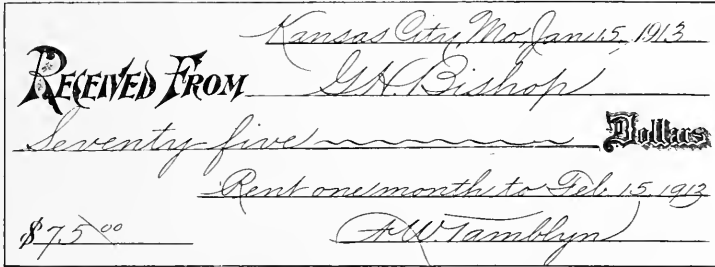 Kansas City, Mo. Jan. 15, 1913
RECEIVED FROM G.H. Bishop
Seventy five Dollars
Rent one month to Feb. 15, 1913
$75.00 F.W. Tamblyn